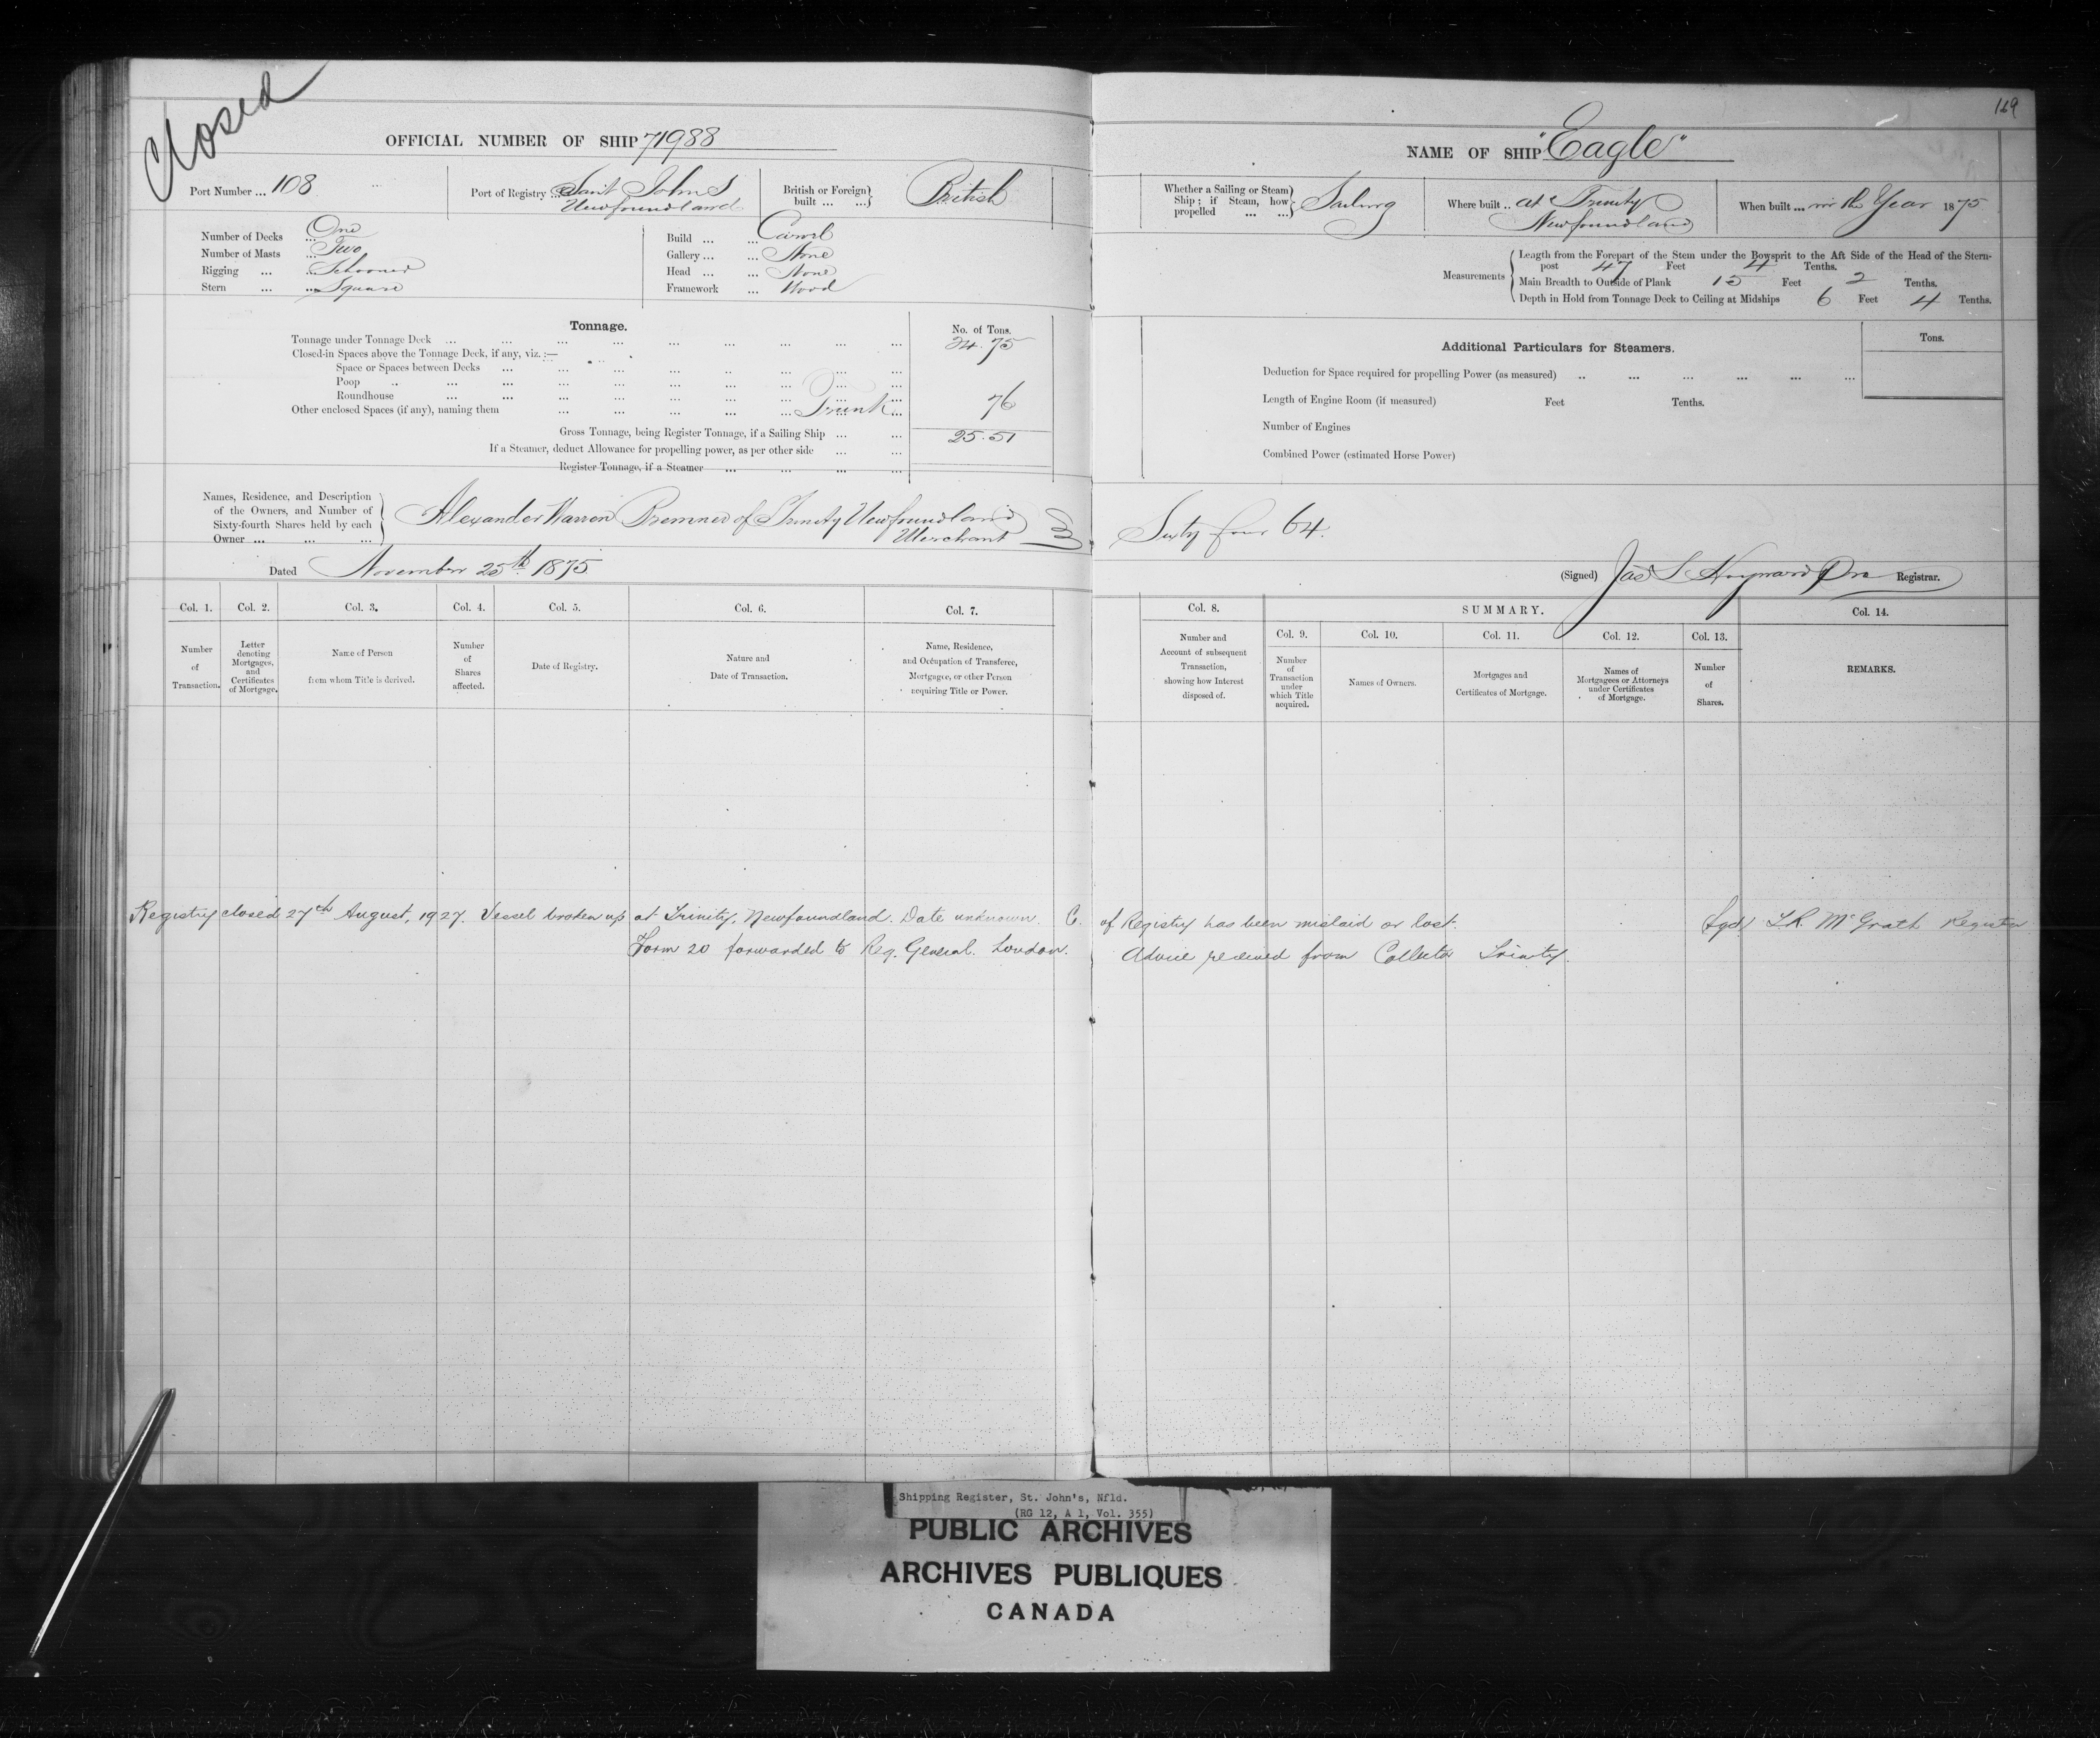 Closed
169
OFFICIAL NUMBER OF SHIP 71988
NAME OF SHIP "Eagle"
Port Number ... 108
Port of Registry ... Saint John's
Newfoundland
British or Foreign built ... ... British
Whether a Sailing or Steam Ship; if Steam, how propelled ... ... Sailing
Where built .. at Trinity
Newfoundland
When built ... in the Year 1875
Number of Decks ... One
Number of Masts ... Two
Rigging ... ... Schooner
Stern ... ... Square
Build ... ... Carvel
Gallery ... ... None
Head ... ... None
Framework ... Wood
Measurements
Length from the Forepart of the Stem under the Bowsprit to the Aft Side of the Head of the Stern-
post 47 Feet 4 Tenths.
Main Breadth to Outside of Plank 15 Feet 2 Tenths.
Depth in Hold from Tonnage Deck to Ceiling at Midships 6 Feet 4 Tenths.
Tonnage.
No. of Tons.
Tonnage under Tonnage Deck ... 24.75
Closed-in Spaces above the Tonnage Deck, if any, viz. :—
Space or Spaces between Decks ...
Poop ...
Roundhouse ...
Other enclosed Spaces (if any), naming them ... Trunk ... 76
Gross Tonnage, being Register Tonnage, if a Sailing Ship ... 25.51
If a Steamer, deduct Allowance for propelling power, as per other side ...
Register Tonnage, if a Steamer ...
Additional Particulars for Steamers.
Tons.
Deduction for Space required for propelling Power (as measured) ...
Length of Engine Room (if measured) Feet Tenths.
Number of Engines
Combined Power (estimated Horse Power)
Names, Residence, and Description
of the Owners, and Number of
Sixty-fourth Shares held by each
Owner ... ... ...
Alexander Warren Bremner of Trinity Newfoundland
Merchant
Sixty four 64.
Dated November 25th 1875
(Signed) Jas S Hayward Registrar.
Col. 1. Col. 2. Col. 3. Col. 4. Col. 5. Col. 6. Col. 7. Col. 8. SUMMARY. Col. 14.
Col. 9. Col. 10. Col. 11. Col. 12. Col. 13.
Number of Transaction.
Letter denoting Mortgages, and Certificates of Mortgage.
Name of Person from whom Title is derived.
Number of Shares affected.
Date of Registry.
Nature and Date of Transaction.
Name, Residence, and Occupation of Transferee, Mortgagee, or other Person acquiring Title or Power.
Number and Account of subsequent Transaction, showing how Interest disposed of.
Number of Transaction under which Title acquired.
Names of Owners.
Mortgages and Certificates of Mortgage.
Names of Mortgagees or Attorneys under Certificates of Mortgage.
Number of Shares.
REMARKS.
Registry closed 27th August, 1927. Vessel broken up at Trinity, Newfoundland. Date unknown. C. of Registry has been mislaid or lost. Sgd/ McGrath Registrar
Form 20 forwarded to Reg. General. London. Advice received from Collector Trinity.
Shipping Register, St. John's, Nfld.
(RG 12, A 1, Vol. 355)
PUBLIC ARCHIVES
ARCHIVES PUBLIQUES
CANADA